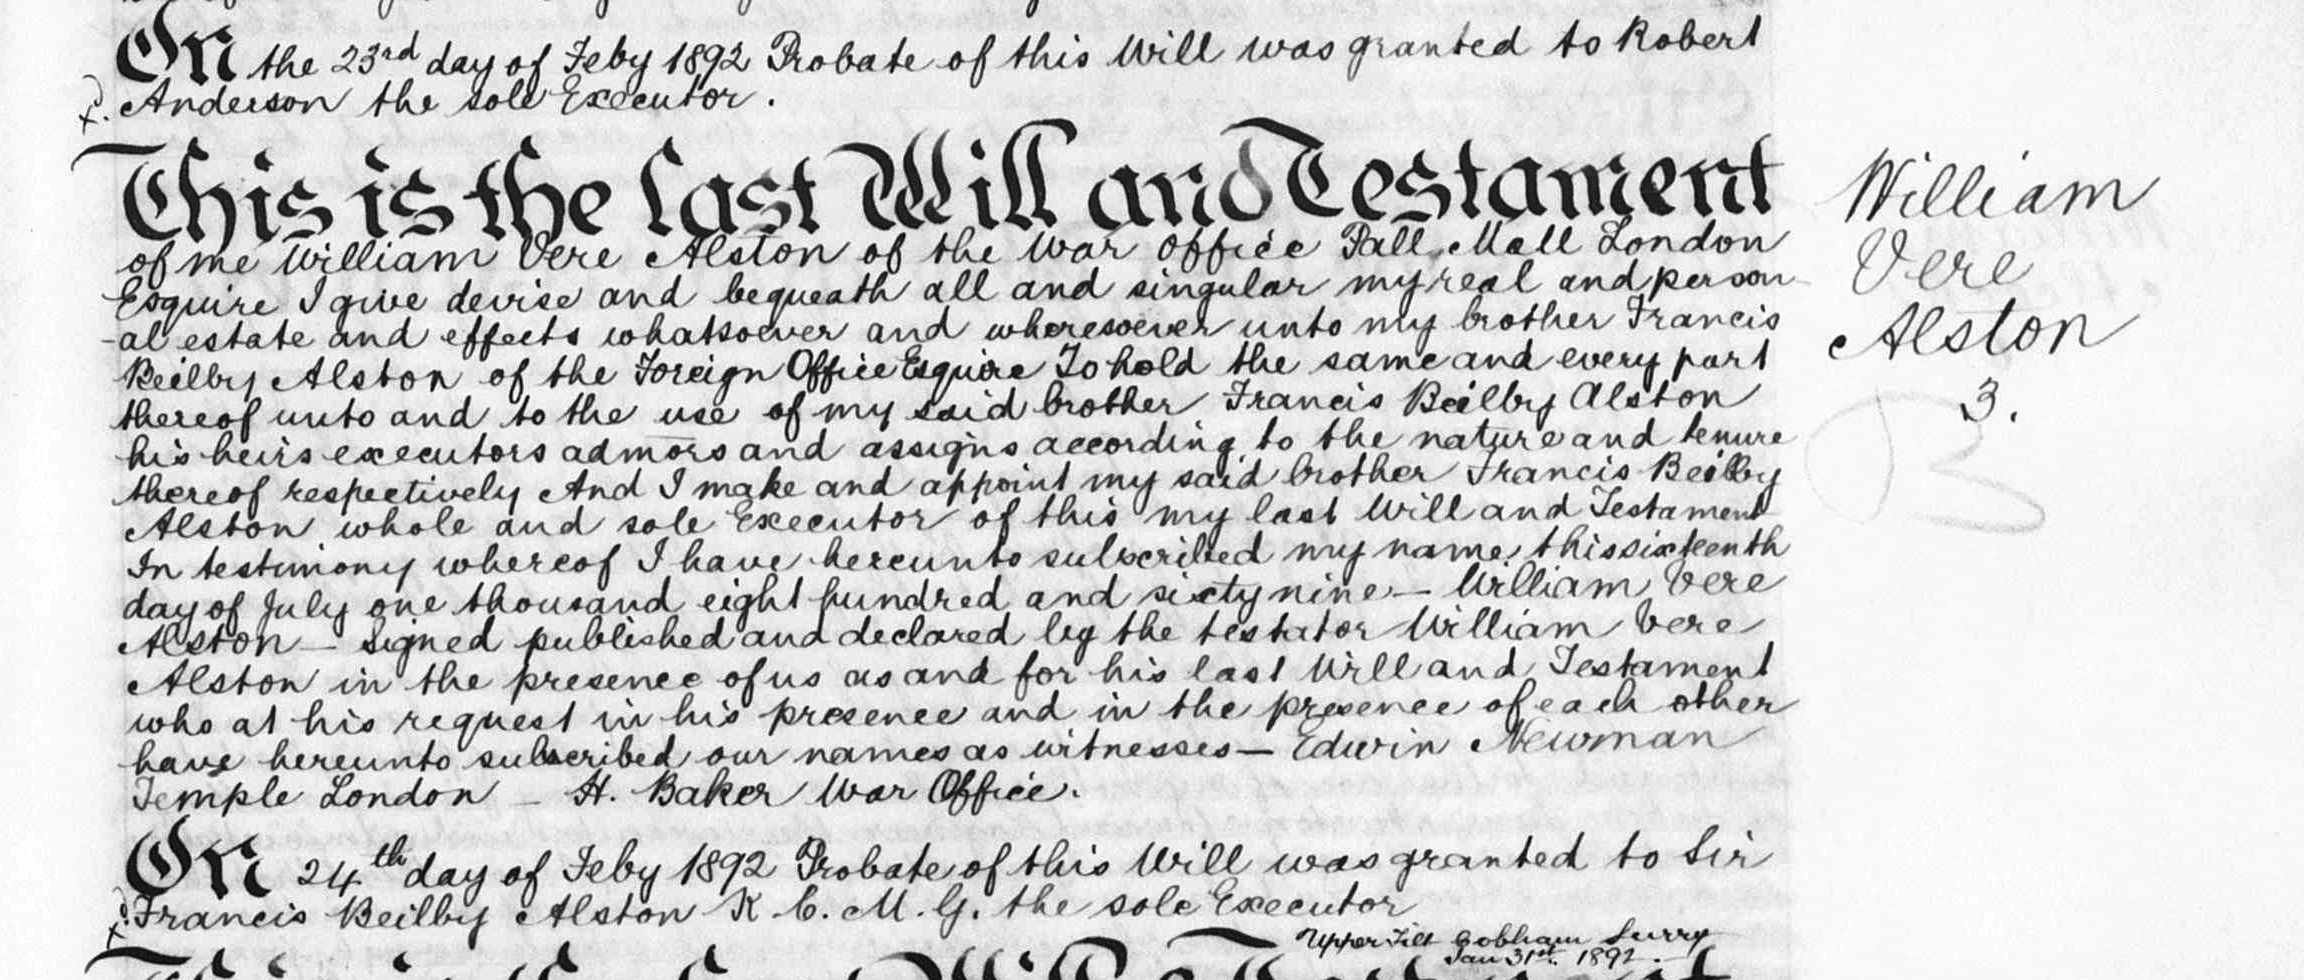 On the 23rd day of Feby 1892 Probate of this Will was granted to Robert
x. Anderson the sole Executor.
This is the last Will and Testament
of me William Vere Alston of the War Office Pall Mall London
Esquire I give devise and bequeath all and singular my real and person-
-al estate and effects whatsoever and wheresoever unto my brother Francis
Beilby Alston of the Foreign Office Esquire To hold the same and every part
thereof unto and to the use of my said brother Francis Beilby Alston
his heirs executors admors and assigns according to the nature and tenure
thereof respectively And I make and appoint my said brother Francis Beilby
Alston whole and sole Executor of this my last Will and Testament
In testimony whereof I have hereunto subscribed my name this sixteenth
day of July one thousand eight hundred and sixty nine — William Vere
Alston — Signed published and declared by the testator William Vere
Alston in the presence of us as and for his last Will and Testament
who at his request in his presence and in the presence of each other
have hereunto subscribed our names as witnesses — Edwin Newman
Temple London — H. Baker War Office.
William
Vere
Alston
3.
On 24th day of Feby 1892 Probate of this Will was granted to Sir
x. Francis Beilby Alston K. C. M. G. the sole Executor
Upper Tilt Cobham Surry
Jan 31st. 1892.